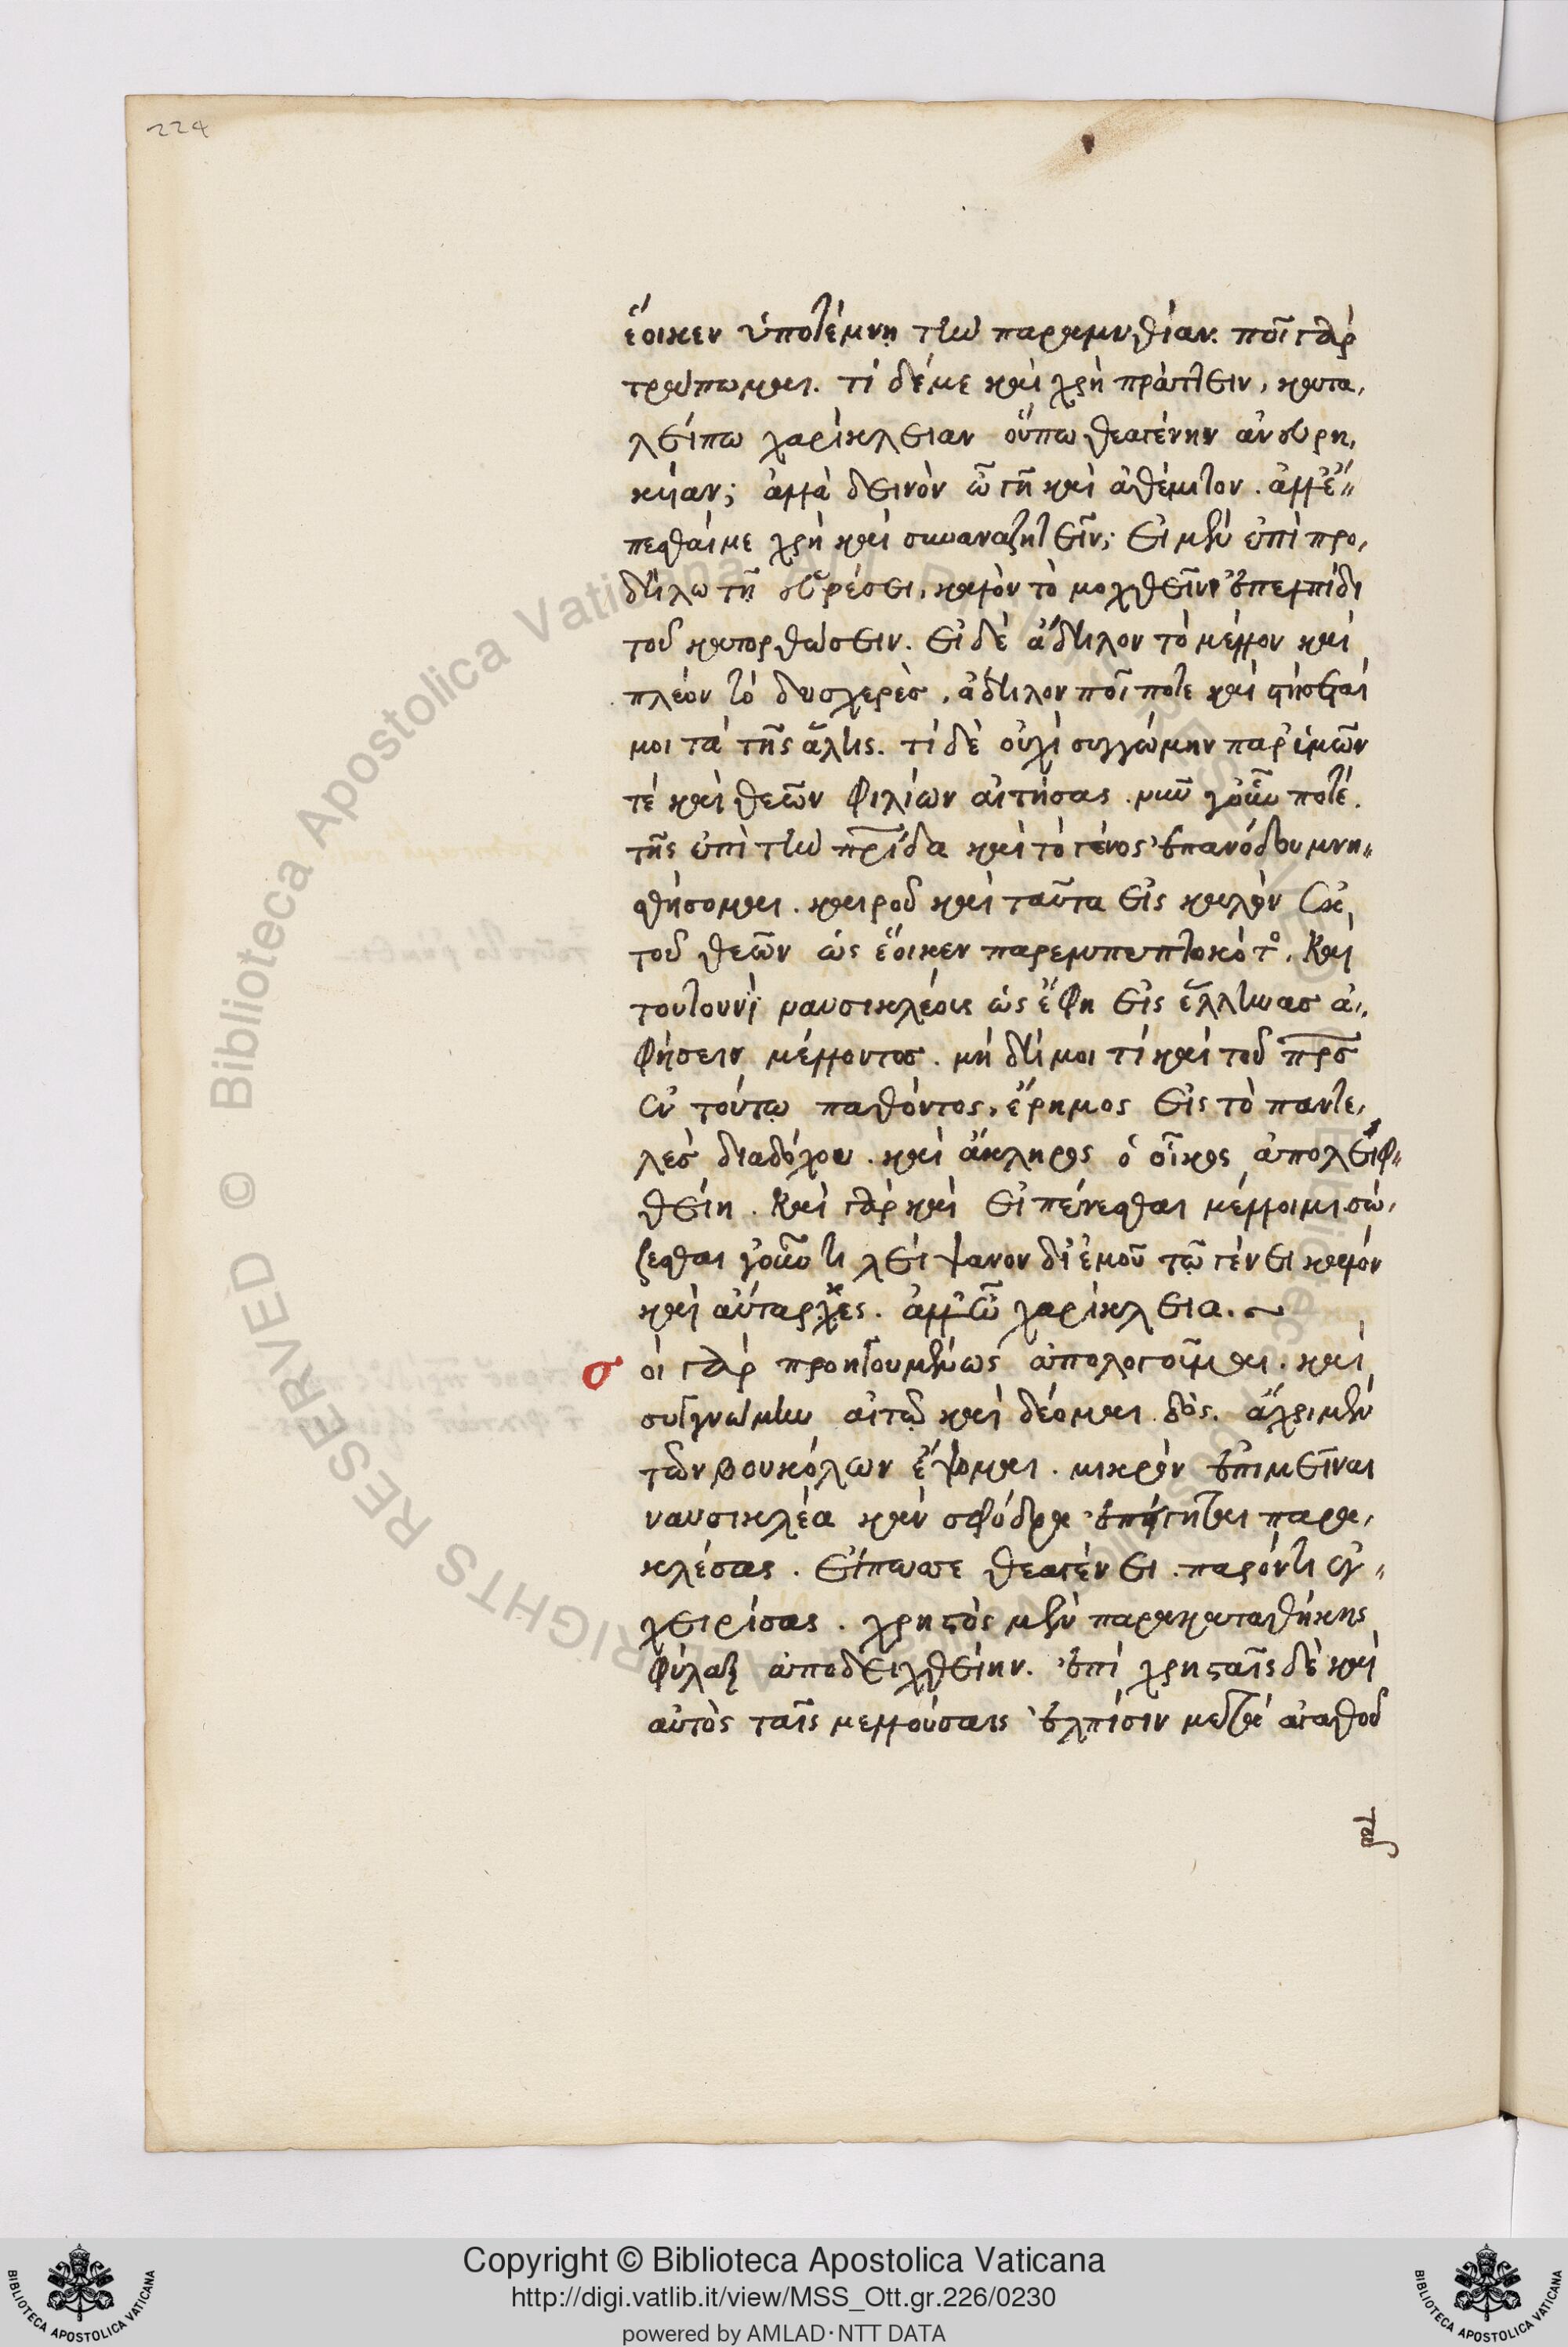 224
ἔοικεν ὑποτέμνη τὴν παραμυθίαν. ποῖ γὰρ
τράπωμαι. τί δέ με καὶ χρὴ πράττειν, κατα,
λείπω χαρίκλειαν οὔπω θεαγένην ἀνευρη,
κυῖαν; ἀλλὰ δεινὸν ὦ γῆ καὶ ἀθέμιτον. ἀλλ' ἕ"
πεσθαί με χρὴ καὶ συναναζητεῖν; εἰ μὲν ἐπὶ προ,
δήλω τῆ εὑρέσει, καλὸν τὸ μοχθεῖν ἐπ' ἐλπίδι
τοῦ κατορθώσειν. εἰ δὲ ἄδηλον τὸ μέλλον καὶ
πλέον τὸ δυσχερὲς, ἄδηλον ποῖ ποτε καὶ στήσεταί
μοι τὰ τῆς ἄλης. τί δὲ οὐχὶ συγγνώμην παρ' ὑμῶν
τέ καὶ θεῶν φιλίων αἰτήσας. νῦν γοῦν ποτέ.
τῆς ἐπὶ τὴν πρίδα καὶ τὸ γένος ἐπανόδου μνη"
σθήσομαι. καιροῦ καὶ ταῦτα εἰς καλὸν ἐκ
του θεῶν ὡς ἔοικεν παρεμπεπτωκότος. καὶ
τουτουνῒ ναυσικλέους ὡς ἔφη εἰς ἕλληνας ἀ,
φήσειν μέλλοντος. μὴ δή μοι τί καὶ τοῦ πρς
ἐν τούτῳ παθόντος, ἔρημος εἰς τὸ παντε,
λὲς διαδόχου. καὶ ἄκληρος ὁ οἶκος ἀπολειφ"
θείη. καὶ γὰρ καὶ εἰ πένεσθαι μέλλοιμι. σώ,
ζεσθαι γοῦν τι λείψανον δι' ἐμοῦ τῷ γένει καλόν
καὶ αὔταρχες. ἀλλ' ὦ χαρίκλεια.
σ οὶ γὰρ προηγουμένως ἀπολογοῦμαι. καὶ
συγγνώμην αἰτῶ καὶ δέομαι δός. ἄχρι μὲν
τῶν βουκόλων ἕψομαι. μικρὸν ἐπιμεῖναι
ναυσικλέα κἀν σφόδρα ἐπείγηται παρα,
κλέσας. εἴπως σε θεαγένει. παρόντι ἐγ"
χειρίσας. χρηστὸς μὲν παρακαταθήκης
φύλαξ ἀποδειχθείην. ἐπὶ χρησταῖς δὲ καὶ
αὐτὸς ταῖς μελλούσαις ἐλπίσιν μετὰ ἀγαθοῦ
Copyright © Biblioteca Apostolica Vaticana
http://digi.vatlib.it/view/MSS_Ott.gr.226/0230
powered by AMLAD·NTT DATA